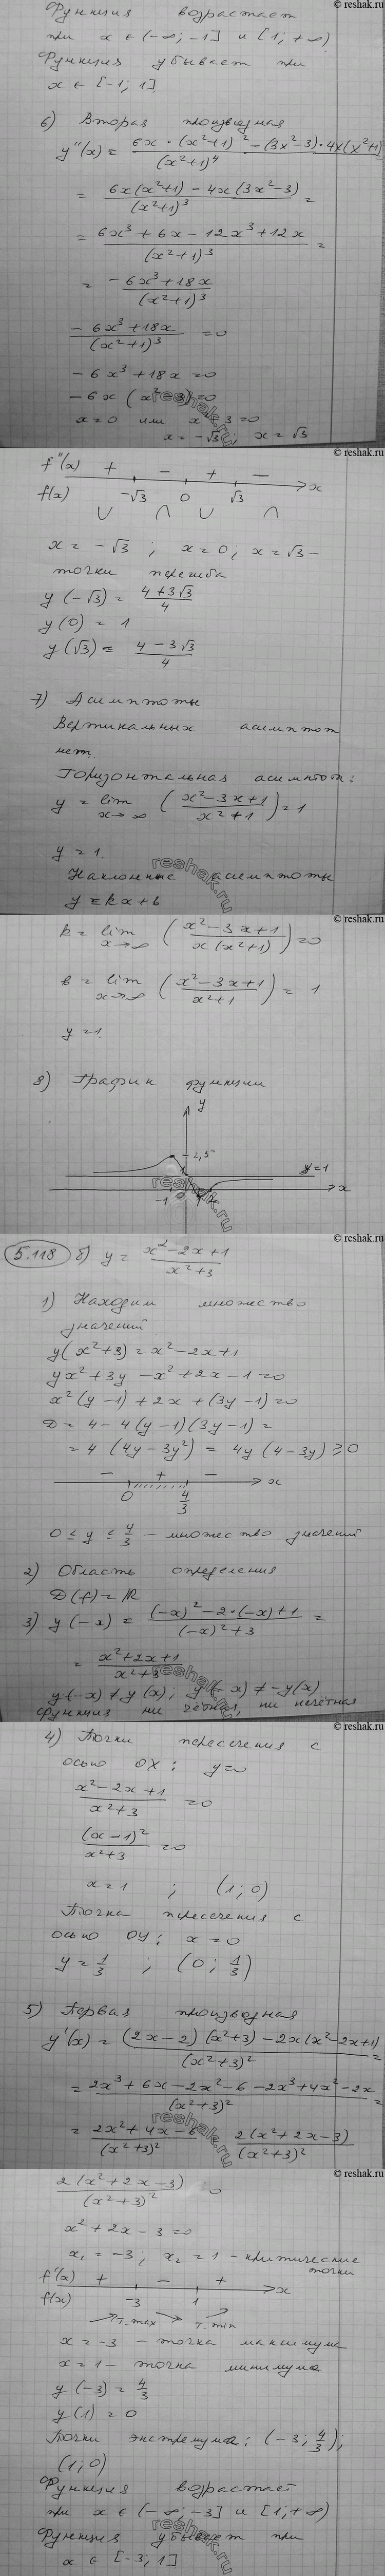 Функция возрастает
при x ∈ (-∞; -1] и [1; +∞)
Функция убывает при
x ∈ [-1; 1]
6) Вторая производная
y''(x) = (6x · (x²+1)² - (3x²-3) · 4x(x²+1))/(x²+1)⁴
= (6x(x²+1) - 4x(3x²-3))/(x²+1)³ =
= (6x³ + 6x - 12x³ + 12x)/(x²+1)³ =
= (-6x³ + 18x)/(x²+1)³
(-6x³ + 18x)/(x²+1)³ = 0
-6x³ + 18x = 0
-6x (x² - 3) = 0
x = 0 или x² - 3 = 0
x = -√3, x = √3
f''(x) + - + - x
f(x) -√3 0 √3
∪ ∩ ∪ ∩
x = -√3 ; x = 0, x = √3 -
точки перегиба
y(-√3) = (4 + 3√3)/4
y(0) = 1
y(√3) = (4 - 3√3)/4
7) Асимптоты
Вертикальных асимптот
нет.
Горизонтальная асимптот:
y = lim x→∞ ((x² - 3x + 1)/(x² + 1)) = 1
y = 1.
Наклонные асимптоты
y = kx + b
k = lim x→∞ ((x² - 3x + 1)/(x(x²+1))) = 0
b = lim x→∞ ((x² - 3x + 1)/(x²+1)) = 1
y = 1.
8) График функции
y
2,5
1 y = 1
-1 0 1 x
5.118 б) y = (x² - 2x + 1)/(x² + 3)
1) Находим множество
значений
y(x² + 3) = x² - 2x + 1
yx² + 3y - x² + 2x - 1 = 0
x²(y - 1) + 2x + (3y - 1) = 0
D = 4 - 4(y - 1)(3y - 1) =
= 4(4y - 3y²) = 4y(4 - 3y) ≥ 0
- + - x
0 4/3
0 ≤ y ≤ 4/3 - множество значений
2) Область определения
D(f) = ℝ
3) y(-x) = ((-x)² - 2·(-x) + 1)/((-x)² + 3) =
= (x² + 2x + 1)/(x² + 3)
y(-x) ≠ y(x); y(-x) ≠ -y(x)
функция ни чётная, ни нечётная
4) Точки пересечения с
осью OX: y = 0
(x² - 2x + 1)/(x² + 3) = 0
(x - 1)²/(x² + 3) = 0
x = 1 ; (1; 0)
Точка пересечения с
осью OY: x = 0
y = 1/3 ; (0; 1/3)
5) Первая производная
y'(x) = ((2x - 2)(x² + 3) - 2x(x² - 2x + 1))/(x² + 3)² =
= (2x³ + 6x - 2x² - 6 - 2x³ + 4x² - 2x)/(x² + 3)² =
= (2x² + 4x - 6)/(x² + 3)² 2(x² + 2x - 3)/(x² + 3)²
2(x² + 2x - 3)/(x² + 3)² = 0
x² + 2x - 3 = 0
x₁ = -3; x₂ = 1 - критические
точки
f'(x) + - + x
f(x) -3 1
т. max т. min
x = -3 - точка максимума
x = 1 - точка минимума
y(-3) = 4/3
y(1) = 0
Точки экстремума: (-3; 4/3);
(1; 0)
Функция возрастает
при x ∈ (-∞; -3] и [1; +∞)
Функция убывает при
x ∈ [-3; 1]